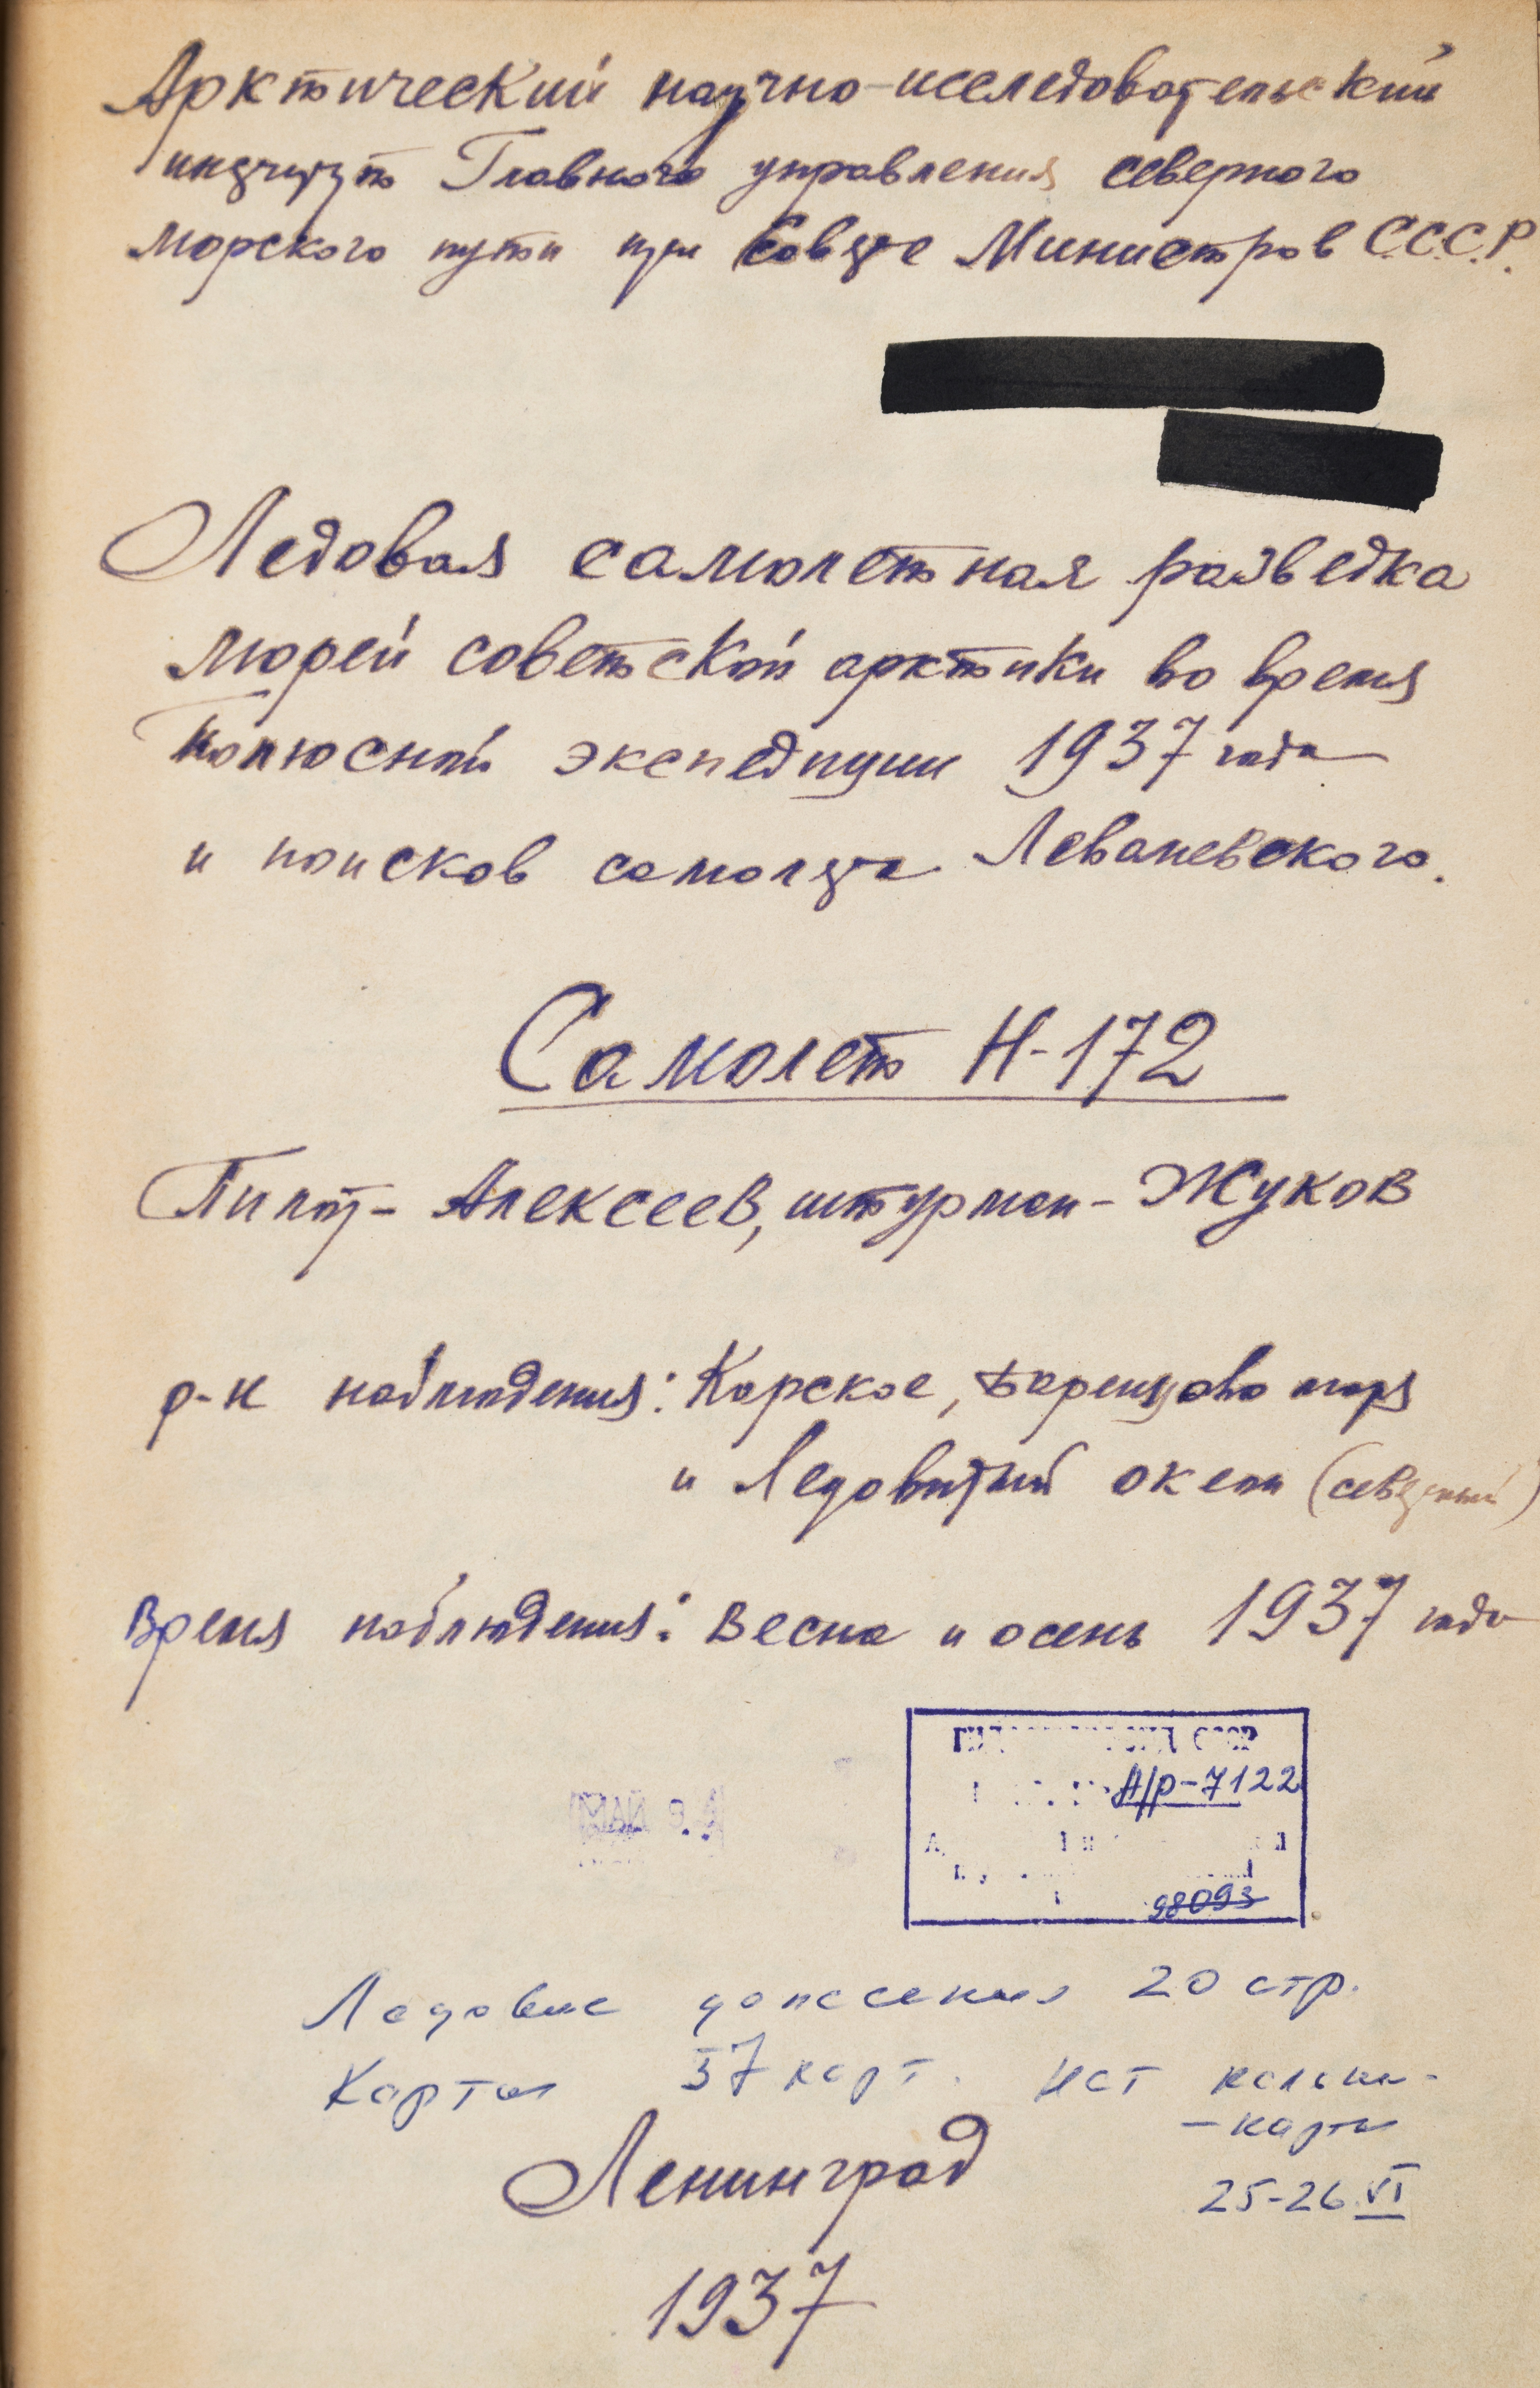 Арктический научно-исследовательский
институт Главного управления северного
морского пути при Совете Министров С.С.С.Р.
Ледовая самолетная разведка
морей советской арктики во время
полюсной экспедиции 1937 года
и поисков самолета Леваневского.
Самолет Н-172
Пилот - Алексеев, штурман - Жуков
р-н наблюдения: Карское, Баренцово моря
и Ледовитый океан (северный)
Время наблюдения: Весна и осень 1937 года
СССР
А/р-7122
МАЙ
98093
Ледовые донесения 20 стр.
Карты 37 карт. Нет кальки-
-карты
25-26 VI
Ленинград
1937